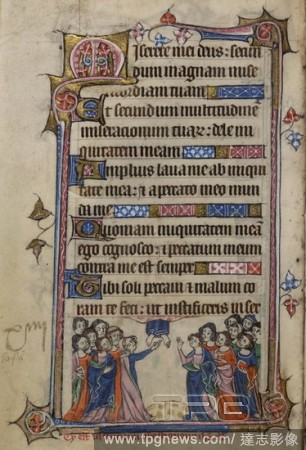 Miserere mei deus: secun
dum magnam mise
ricordiam tuam
Et secundum multitudine
miseracionum tuar: dele ini
quitatem meam
Amplius laua me ab iniqui
tate mea: & a peccato meo mun
da me
Quoniam iniquitatem meam
ego cognosco: & peccatum meum
contra me est semper
Tibi soli peccaui & malum co
ram te feci: ut iustificeris in ser
TPG
www.tpgnews.com/ 達志影像